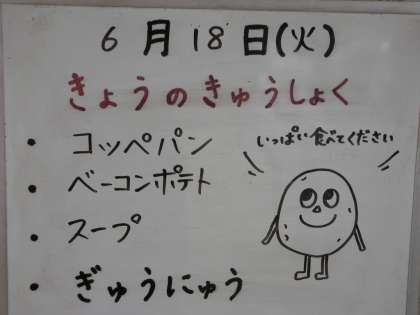 6月18日(火)
きょうのきゅうしょく
・コッペパン
・ベーコンポテト
・スープ
・ぎゅうにゅう
いっぱい食べてください